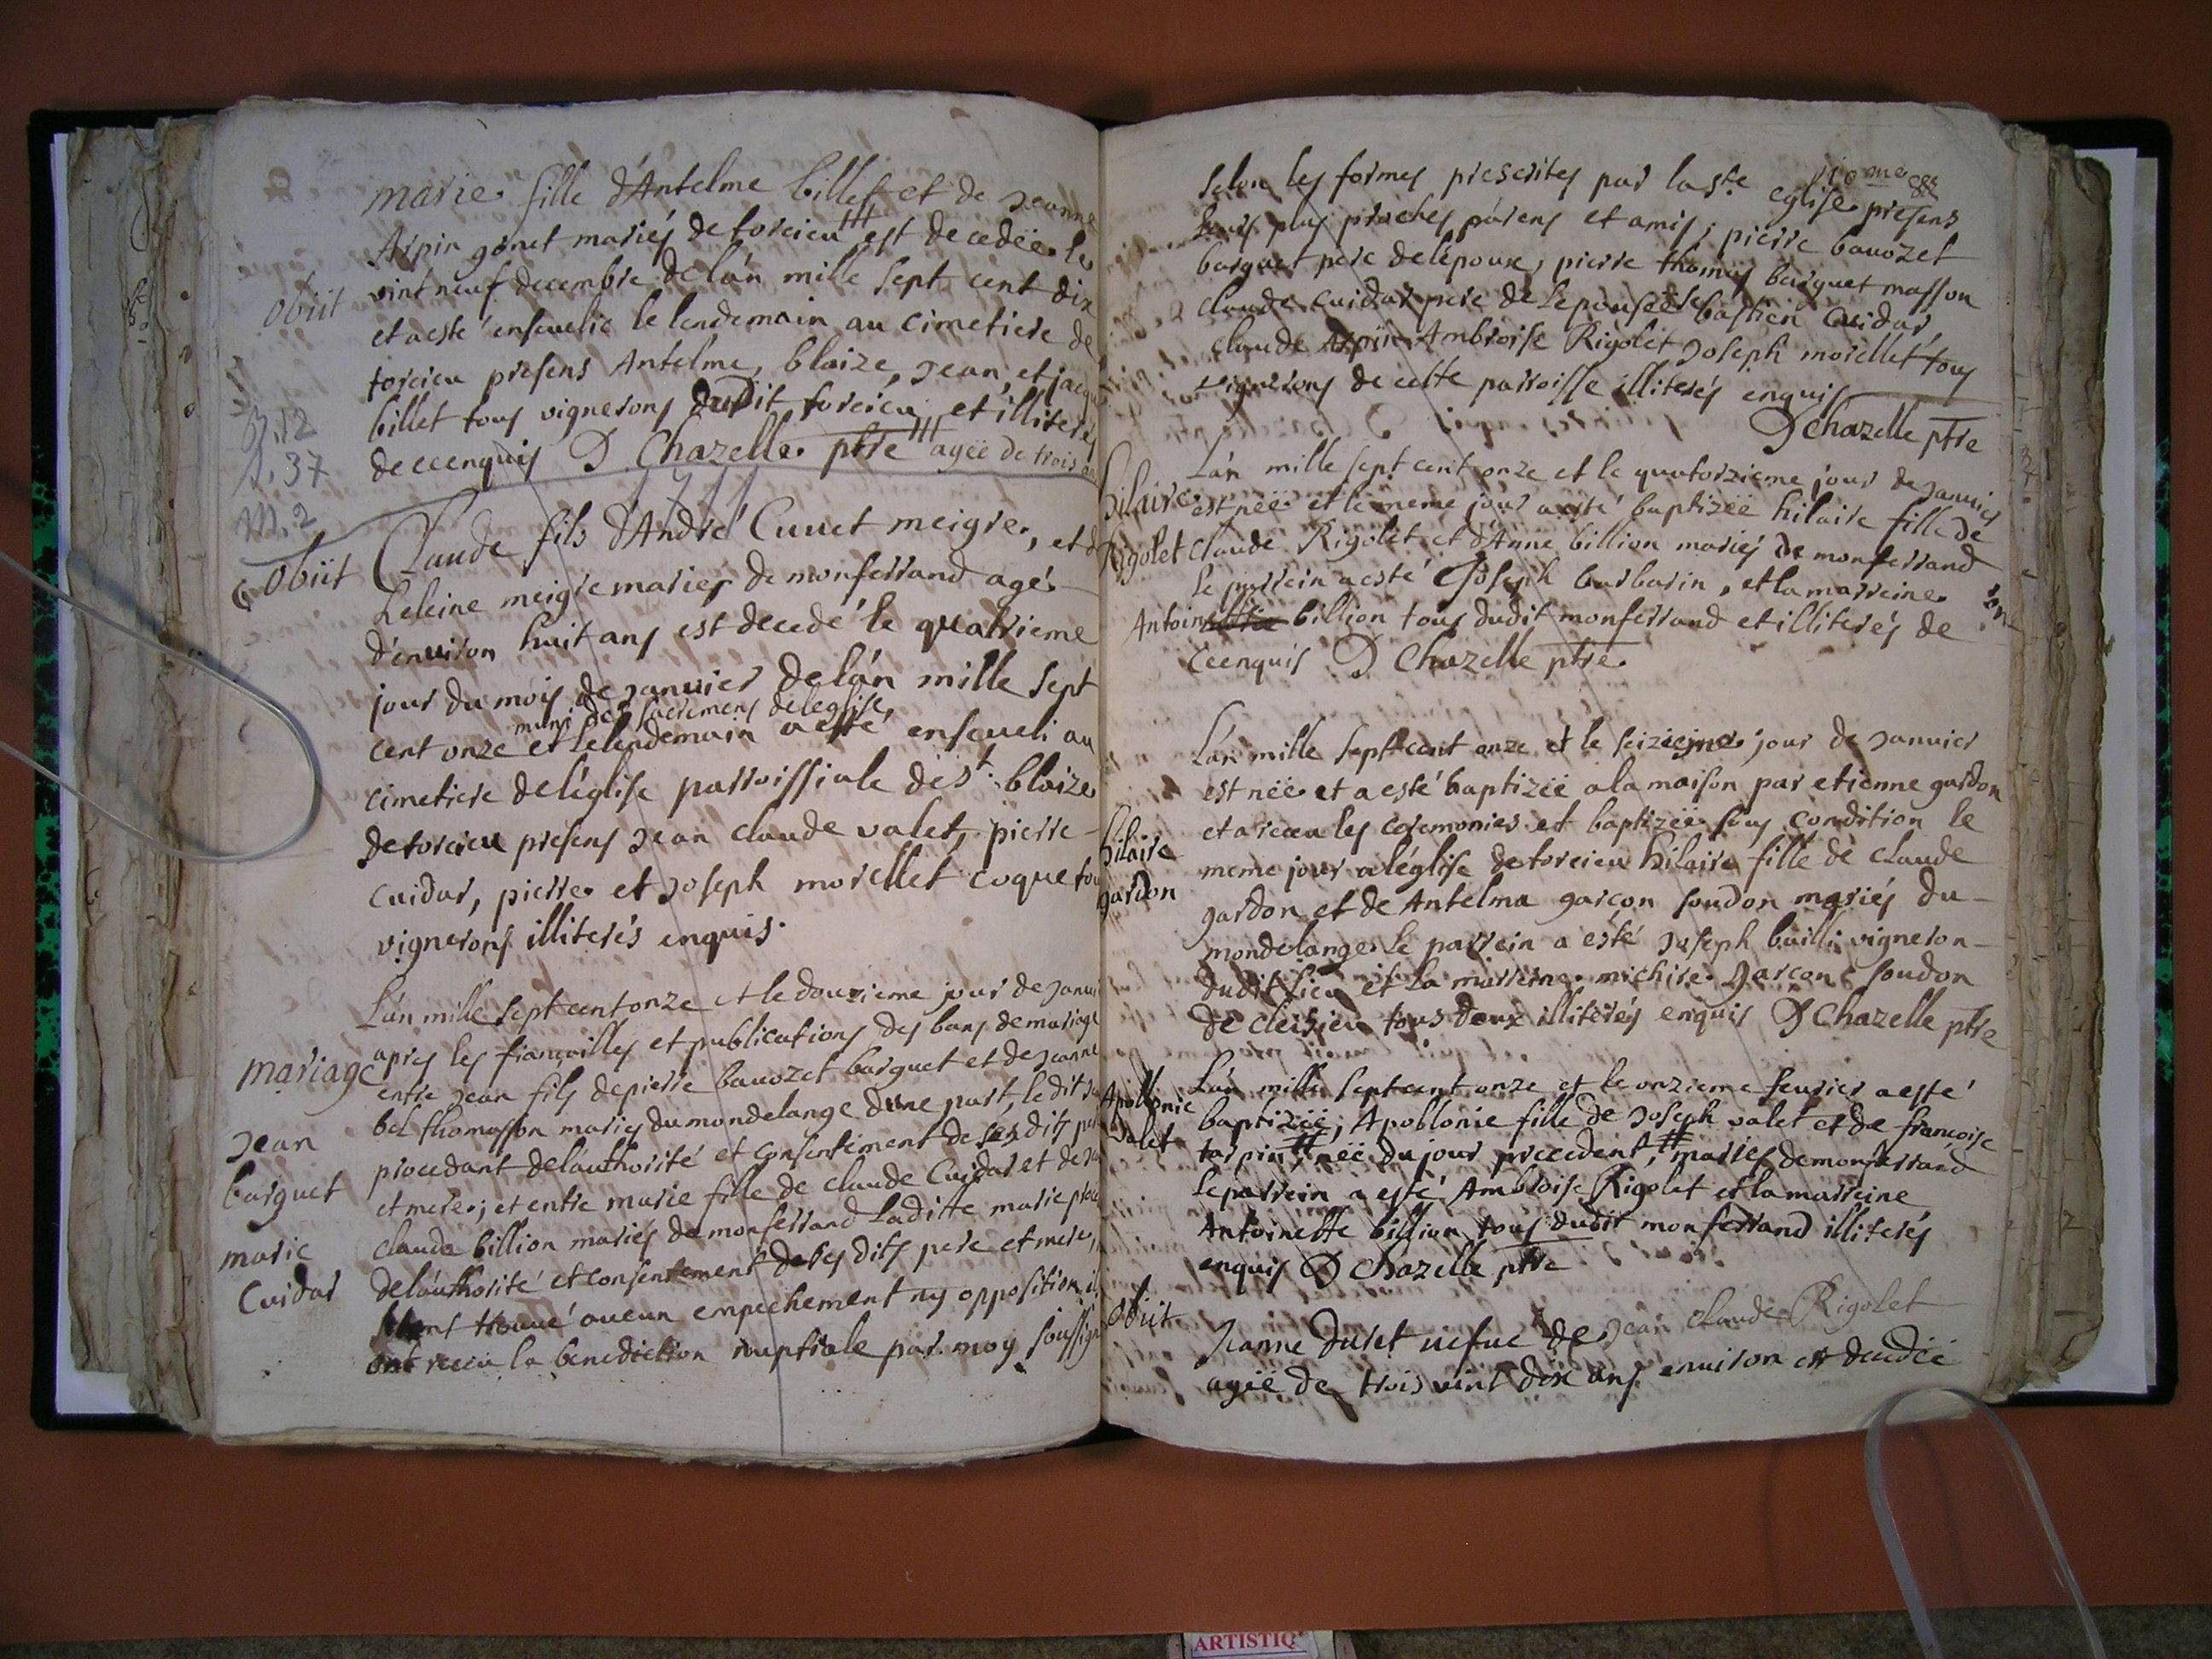 marie fille d'Antelme billet et de Jeanne
Arpin gonet mariés de torcieu est decedëe le
vint neuf decembre de lán mille sept cent dix
Obiit
et a esté ensevelie le lendemain au cimetiere de
torcieu presens Antelme, blaize, Jean, et jacque
billet tous vignerons dudit torcieu et illiterés
de ce enquis D Chazelle ptre agëe de trois an
B. 12
S. 37
M. 2
1711
Obiit
Claude fils d'André Cuuet meigre, et d
Leleine meigre mariés de monferrand agé
d'enuiron huit ans est decedé le quatrieme
jour du mois de Januier de lán mille sept
muni des sacremens de leglise
cent onze et le lendemain a esté enseueli au
cimetiere de léglise parroissiale de st. blaize
de torcieu presens Jean claude valet, pierre
cuidar, pierre et Joseph morellet coque tou
vignerons illiterés enquis.
Lán mille sept cent onze et le douzieme jour de Janui
mariage
apres les fiançailles et publications des bans de mariage
entre Jean fils de pierre bauozet barguet et de Jeanne
bel thomasson mariés du mondelange dune part, le dit
Jean
barguet
procedant de lauthorité et consentement de ses dits
et mere; et entre marie fille de claude Cuidar et de
marie
Cuidar
claude billion mariés de monferrand laditte marie
de láuthorité et consentement de ses dits pere et mere,
trouué aucun empechement ny opposition
ont receu la benediction nuptiale par moy soussign
selon les formes prescrites par la ste eglise presens
leurs plus proches párens et amis; pierre bauozet
barguet pere de lépoux, pierre thomas barguet masson
claude cuidar pere de Lepousée sebastien Cuidar,
claude Arpin Ambroise Rigolet Joseph morellet tous
vignerons de cette parroisse illiterés enquis
D Chazelle ptre
Lán mille sept cent onze et le quatorzieme jour de Januier
hilaire
Rigolet
est nëe et le meme jour a esté baptizëe hilaire fille de
Claude Rigolet et d'Anne billion mariés de monferrand
le parrein a esté Joseph barbarin, et la marreine
Antoinette billion tous dudit monferrand et illiterés de
ce enquis D Chazelle ptre
Lán mille sept cent onze et le seizieme jour de Januier
est nëe et a esté baptizëe a la maison par etienne gardon
et a receu les ceremonies et baptizëe sous condition le
hilaire
gardon
meme jour a léglise de torcieu hilaire fille de claude
gardon et de Antelma garçon soudon mariés du
mondelange le parrein a esté Joseph bailli vigneron
dudit lieu et la marreine michire garçon soudon
de cleisieu tous deux illiterés enquis D Chazelle ptre
Apollonie
valet
Lán mille sept cent onze et le onzieme feurier a esté
baptizëe, Apollonie fille de Joseph valet et de françoise
tarpin, nëe du jour precedent, mariés de monferrand
le parrein a esté Ambroise Rigolet et la marreine
Antoinette billion tous dudit monferrand illiterés
enquis D Chazelle ptre
Obiit
Jeanne Duret uefue de Jean claude Rigolet
agëe de trois vint dix ans enuiron est decedëe
ARTISTIQ